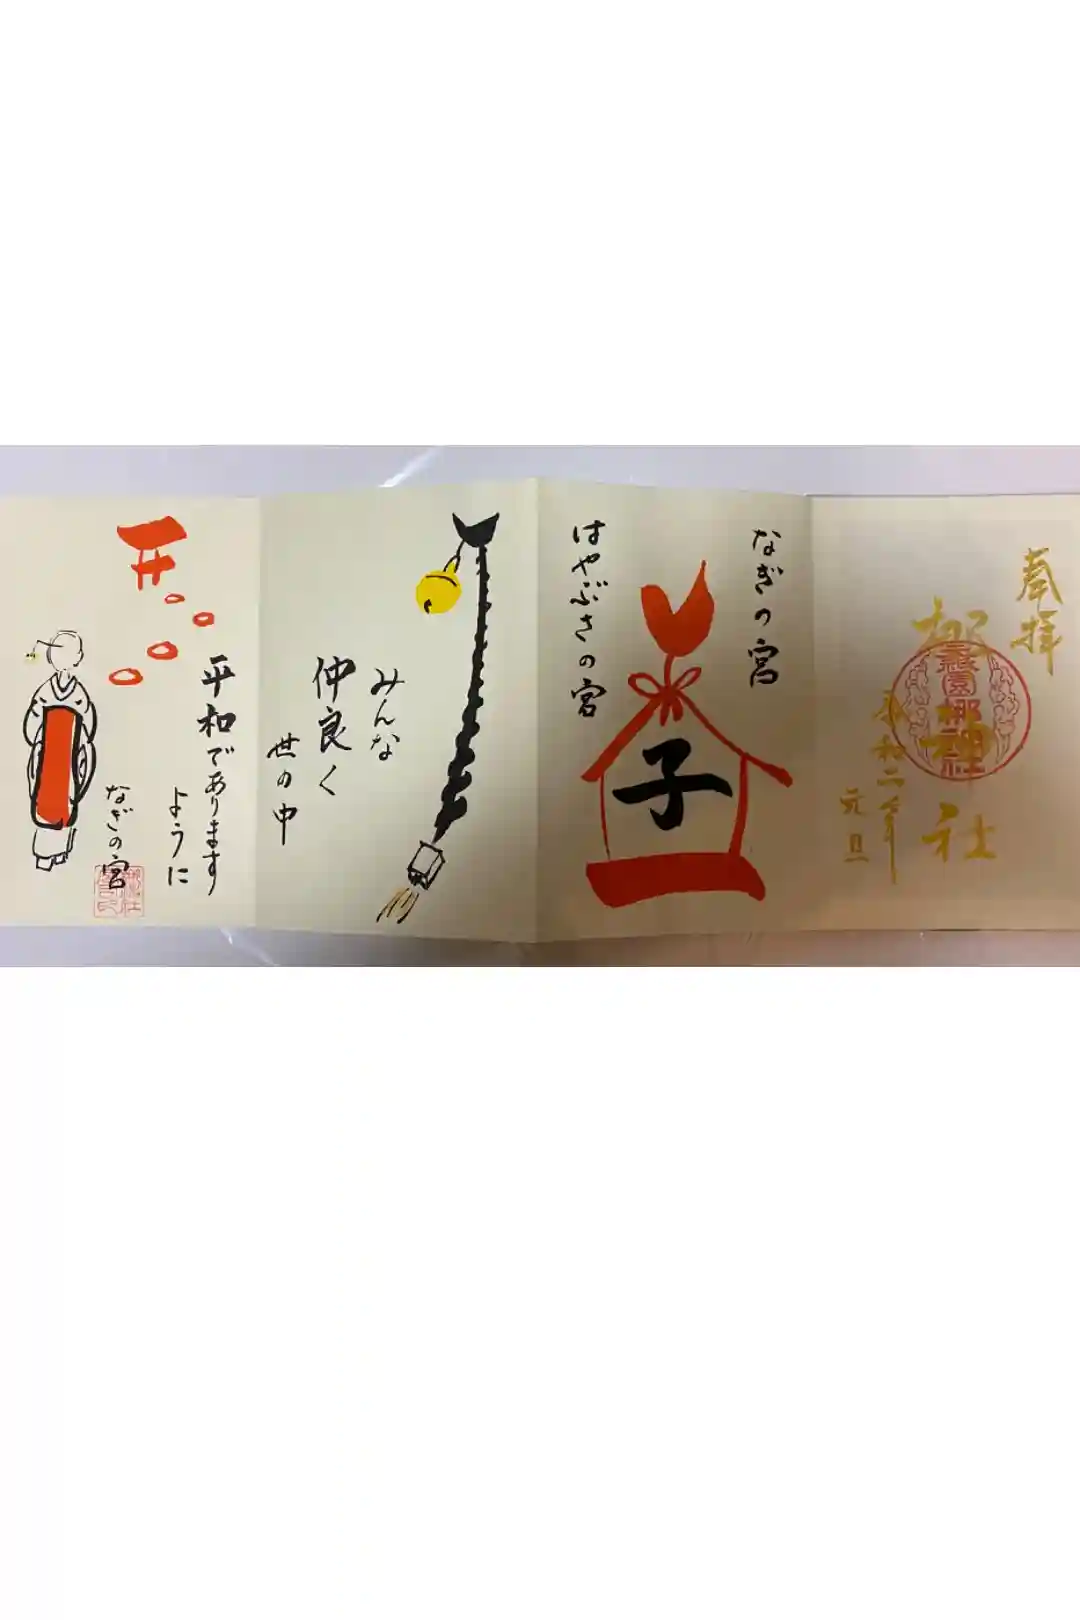 奉拝
梛神社
元祇園梛神社
令和二年
元旦
なぎの宮
子
はやぶさの宮
みんな
仲良く
世の中
平和であります
ように
なぎの宮